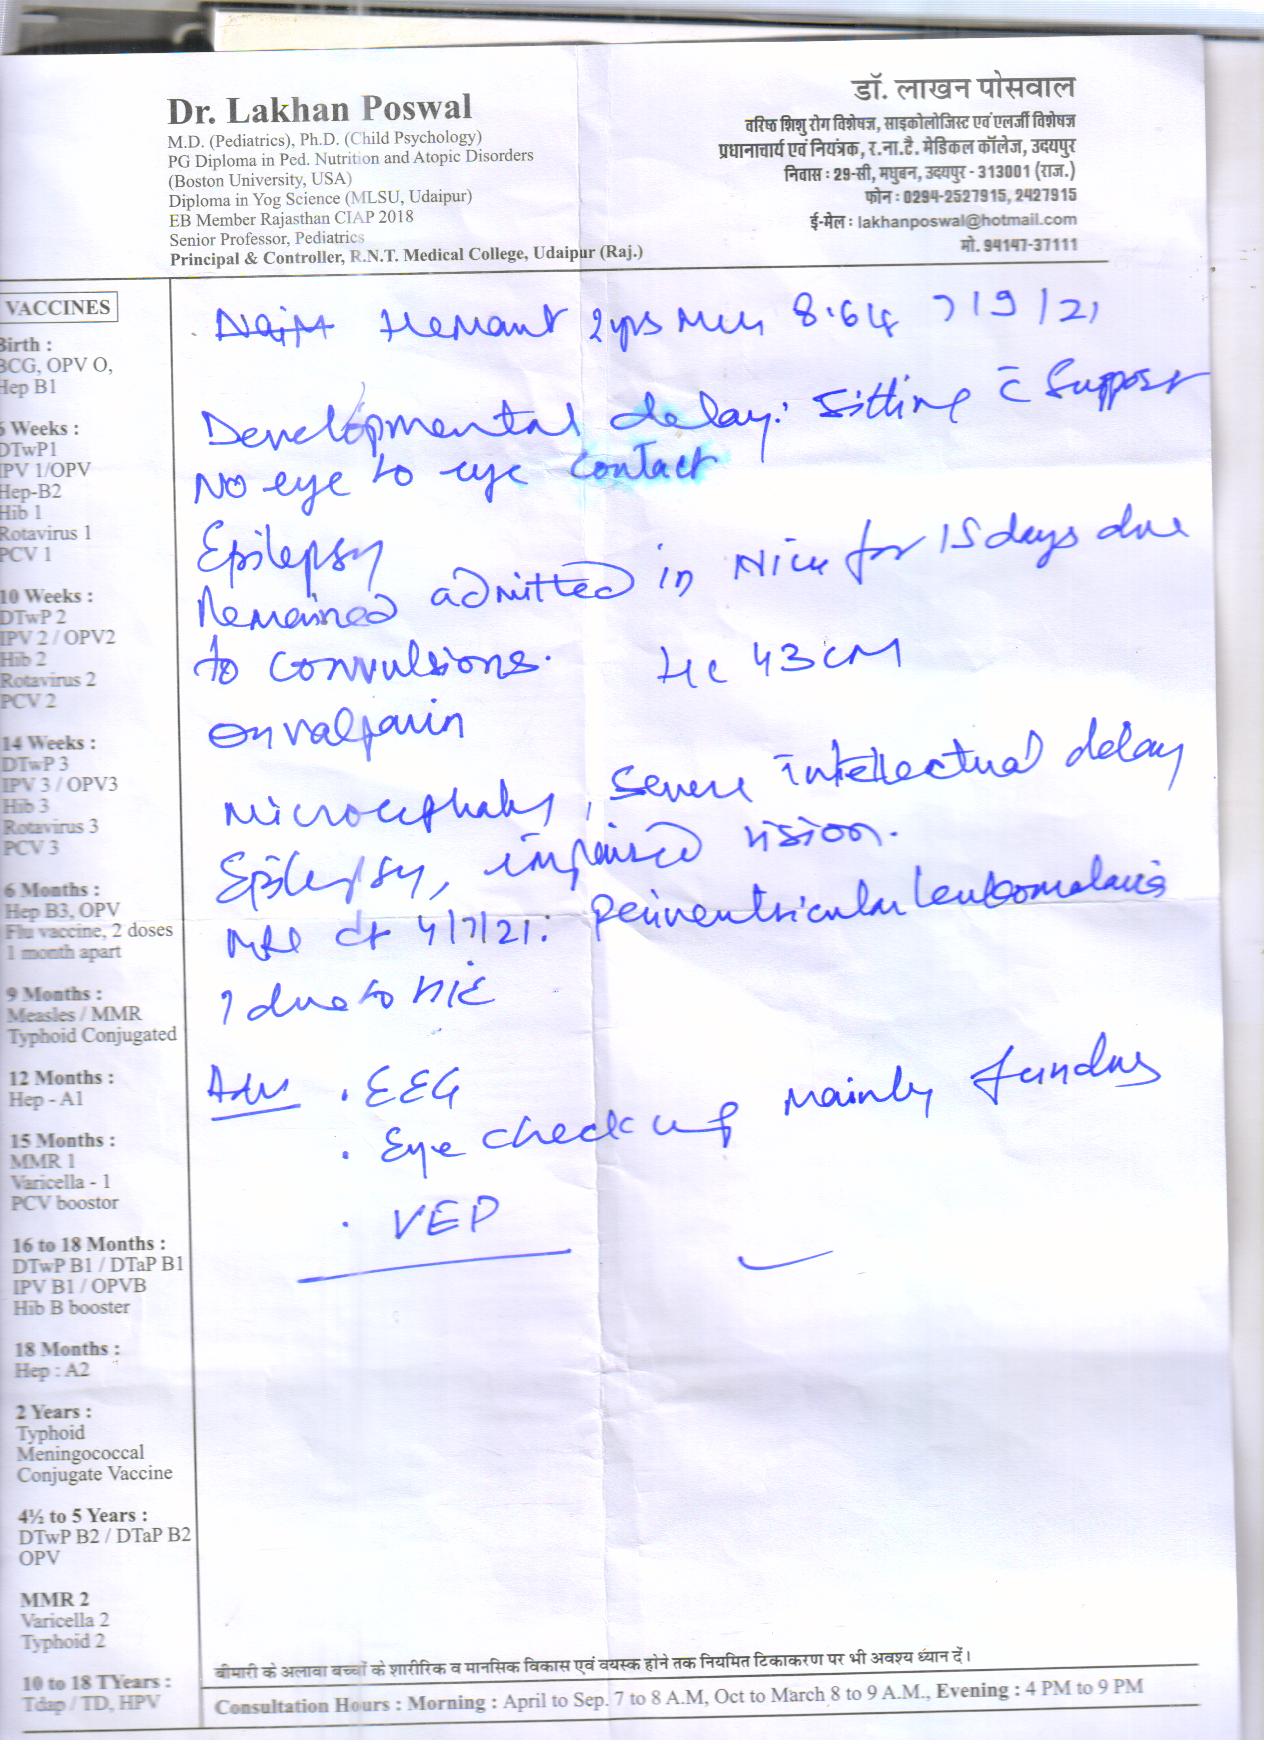 Dr. Lakhan Poswal
M.D. (Pediatrics), Ph.D. (Child Psychology)
PG Diploma in Ped. Nutrition and Atopic Disorders
(Boston University, USA)
Diploma in Yog Science (MLSU, Udaipur)
EB Member Rajasthan CIAP 2018
Senior Professor, Pediatrics
Principal & Controller, R.N.T. Medical College, Udaipur (Raj.)
डॉ. लाखन पोसवाल
वरिष्ठ शिशु रोग विशेषज्ञ, साइकोलोजिस्ट एवं एलर्जी विशेषज्ञ
प्रधानाचार्य एवं नियंत्रक, र.ना.टै. मेडिकल कॉलेज, उदयपुर
निवास : 29-सी, मधुबन, उदयपुर - 313001 (राज.)
फोन : 0294-2527915, 2427915
ई-मेल : lakhanposwal@hotmail.com
मो. 94147-37111
VACCINES
Birth :
BCG, OPV O,
Hep B1
6 Weeks :
DTwP1
IPV 1/OPV
Hep-B2
Hib 1
Rotavirus 1
PCV 1
10 Weeks :
DTwP 2
IPV 2 / OPV2
Hib 2
Rotavirus 2
PCV 2
14 Weeks :
DTwP 3
IPV 3 / OPV3
Hib 3
Rotavirus 3
PCV 3
6 Months :
Hep B3, OPV
Flu vaccine, 2 doses
1 month apart
9 Months :
Measles / MMR
Typhoid Conjugated
12 Months :
Hep - A1
15 Months :
MMR 1
Varicella - 1
PCV boostor
16 to 18 Months :
DTwP B1 / DTaP B1
IPV B1 / OPVB
Hib B booster
18 Months :
Hep : A2
2 Years :
Typhoid
Meningococcal
Conjugate Vaccine
4½ to 5 Years :
DTwP B2 / DTaP B2
OPV
MMR 2
Varicella 2
Typhoid 2
10 to 18 TYears :
Tdap / TD, HPV
Hemant 2yrs 7/9/21
Developmental delay: Sitting c̄ Support
No eye to eye contact
Epilepsy
Remained admitted in Nicu for 15 days due
to convulsions. HC 43 cm
on valparin
Microcephaly, Severe intellectual delay
Epilepsy, impaired vision.
MRI dt 4/7/21: Periventricular leukomalacia
? due to HIE
Adv . EEG
. Eye check up mainly fundus
. VEP
बीमारी के अलावा बच्चों के शारीरिक व मानसिक विकास एवं वयस्क होने तक नियमित टिकाकरण पर भी अवश्य ध्यान दें।
Consultation Hours : Morning : April to Sep. 7 to 8 A.M, Oct to March 8 to 9 A.M., Evening : 4 PM to 9 PM